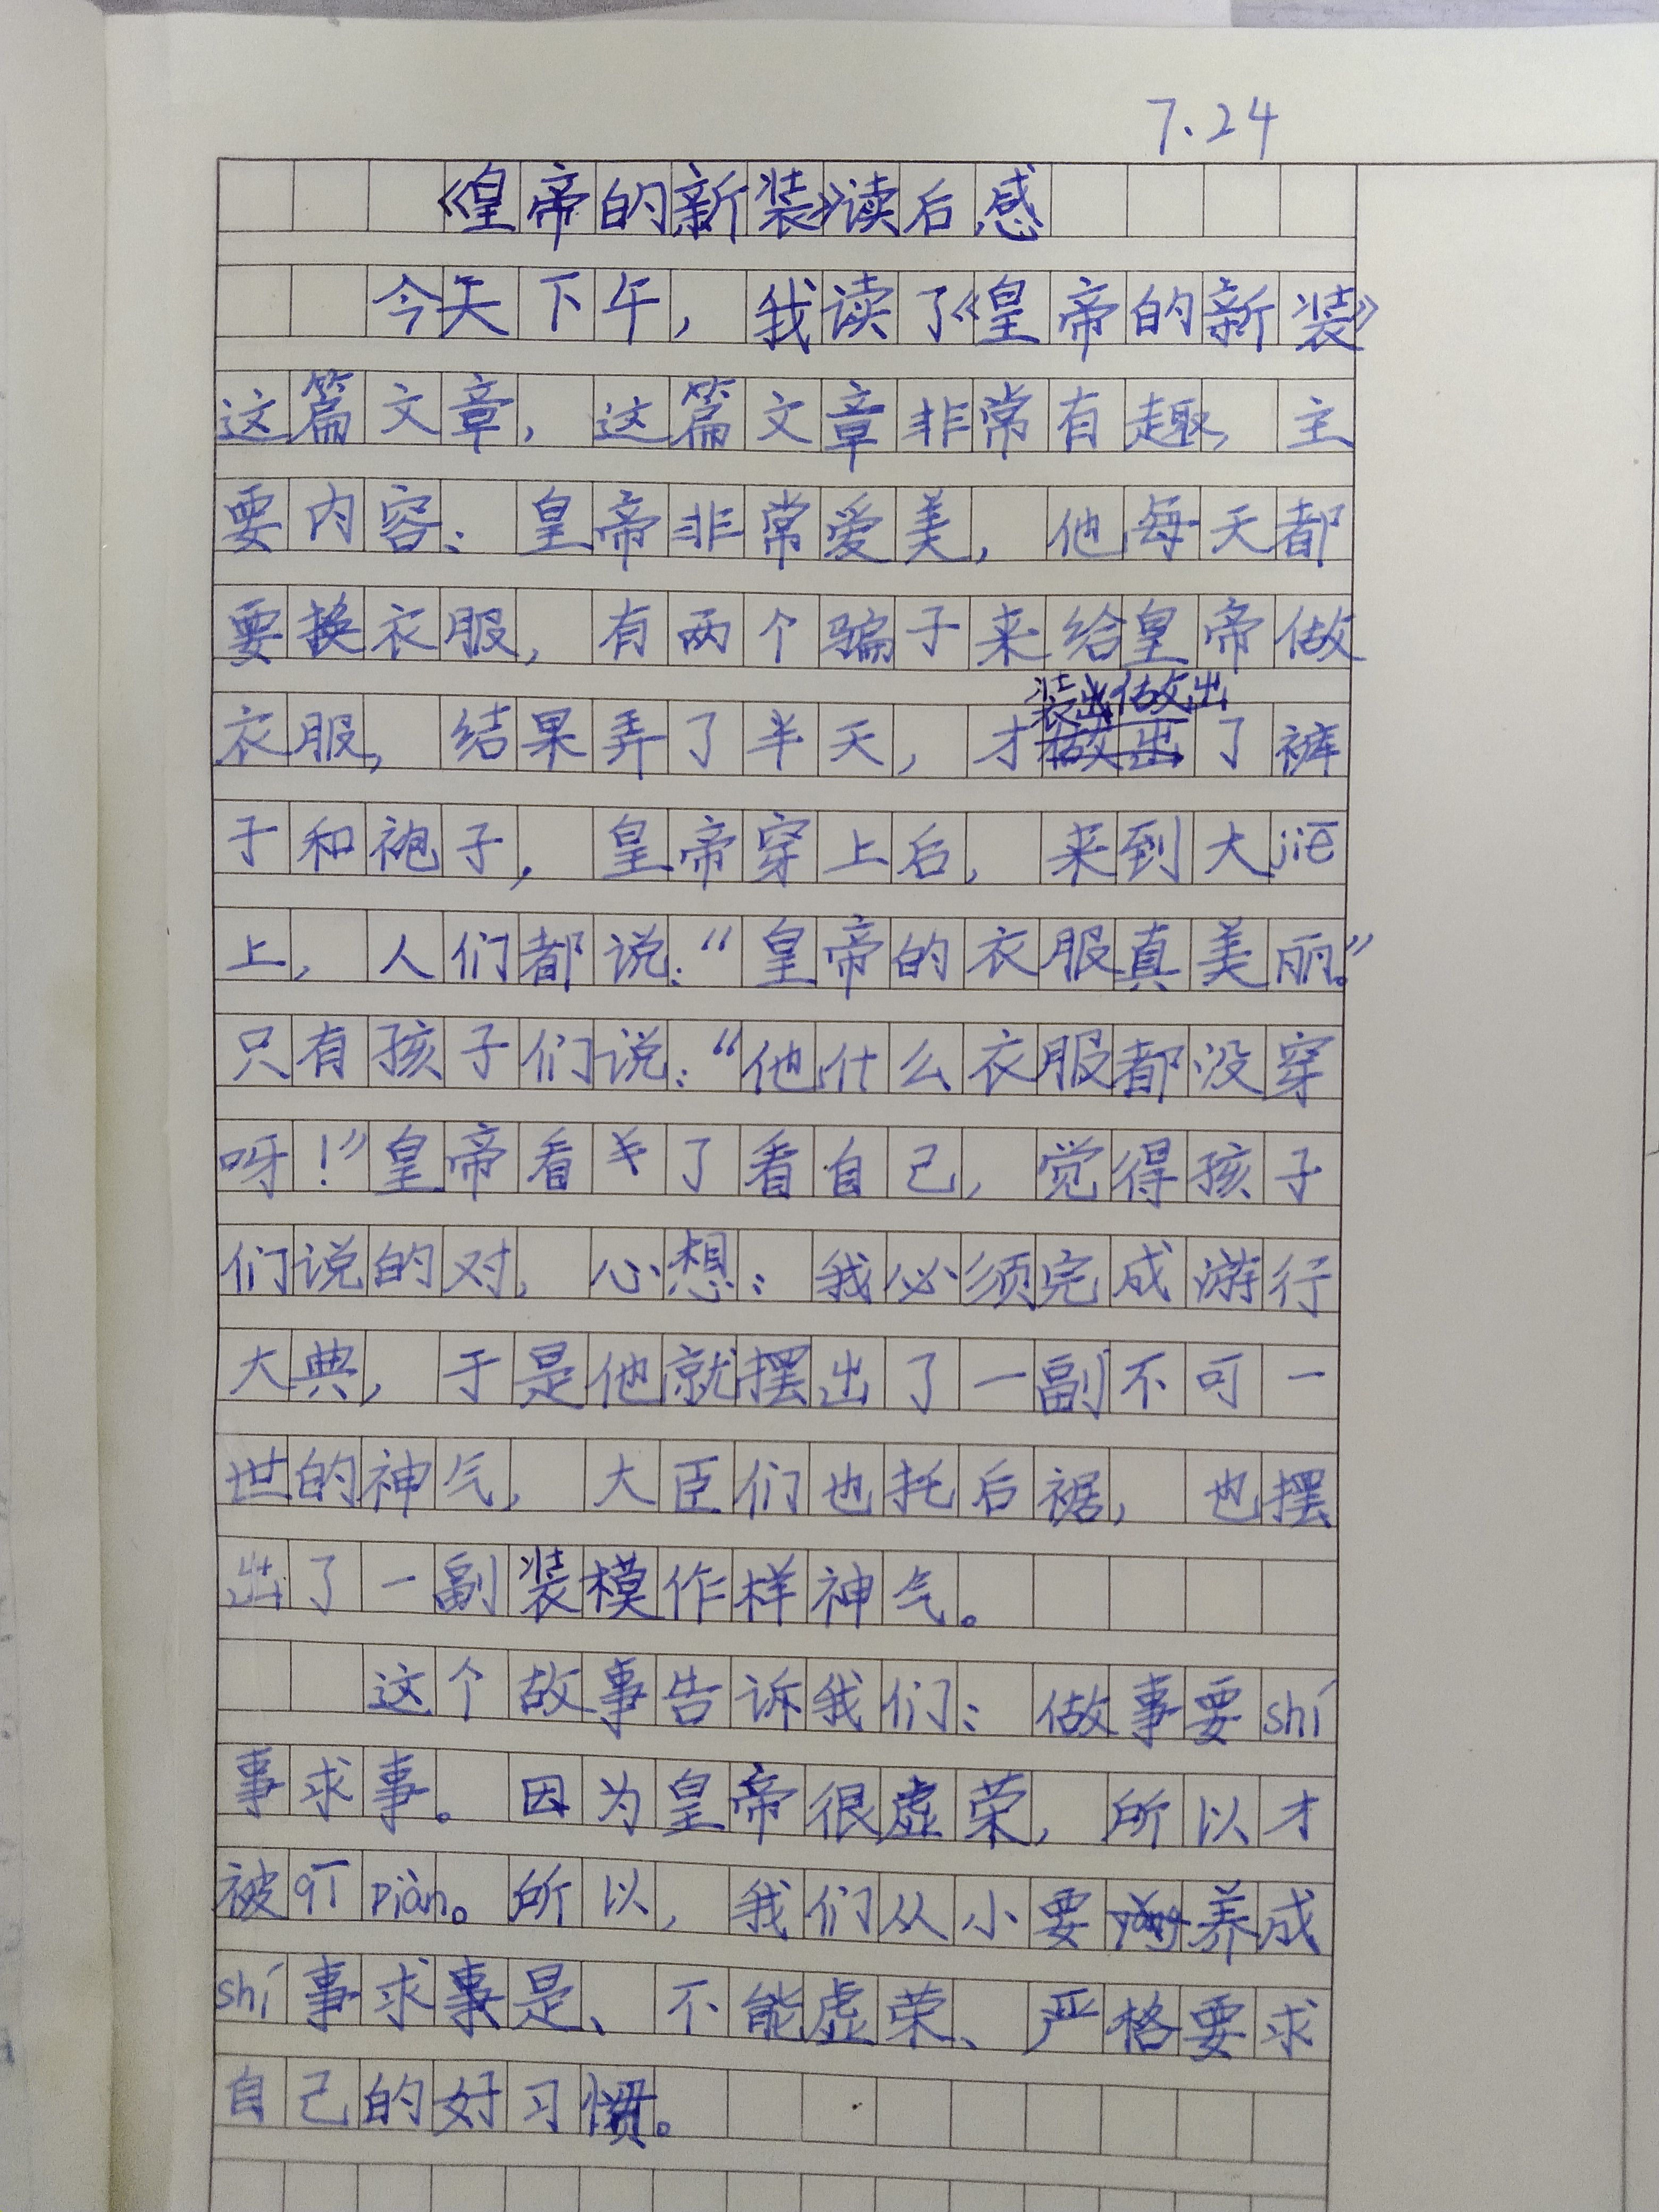 7.24
《皇帝的新装》读后感
今天下午，我读了《皇帝的新装》
这篇文章，这篇文章非常有趣，主
要内容：皇帝非常爱美，他每天都
要换衣服，有两个骗子来给皇帝做
装出做出
衣服，结果弄了半天，才做出了裤
子和袍子，皇帝穿上后，来到大jiē
上，人们都说：“皇帝的衣服真美丽。”
只有孩子们说：“他什么衣服都没穿
呀！”皇帝看了看自己，觉得孩子
们说的对，心想：我必须完成游行
大典，于是他就摆出了一副不可一
世的神气，大臣们也托后裾，也摆
出了一副装模作样神气。
这个故事告诉我们：做事要shí
事求事。因为皇帝很虚荣，所以才
被qī piàn。所以，我们从小要养成
shí事求事是、不能虚荣、严格要求
自己的好习惯。